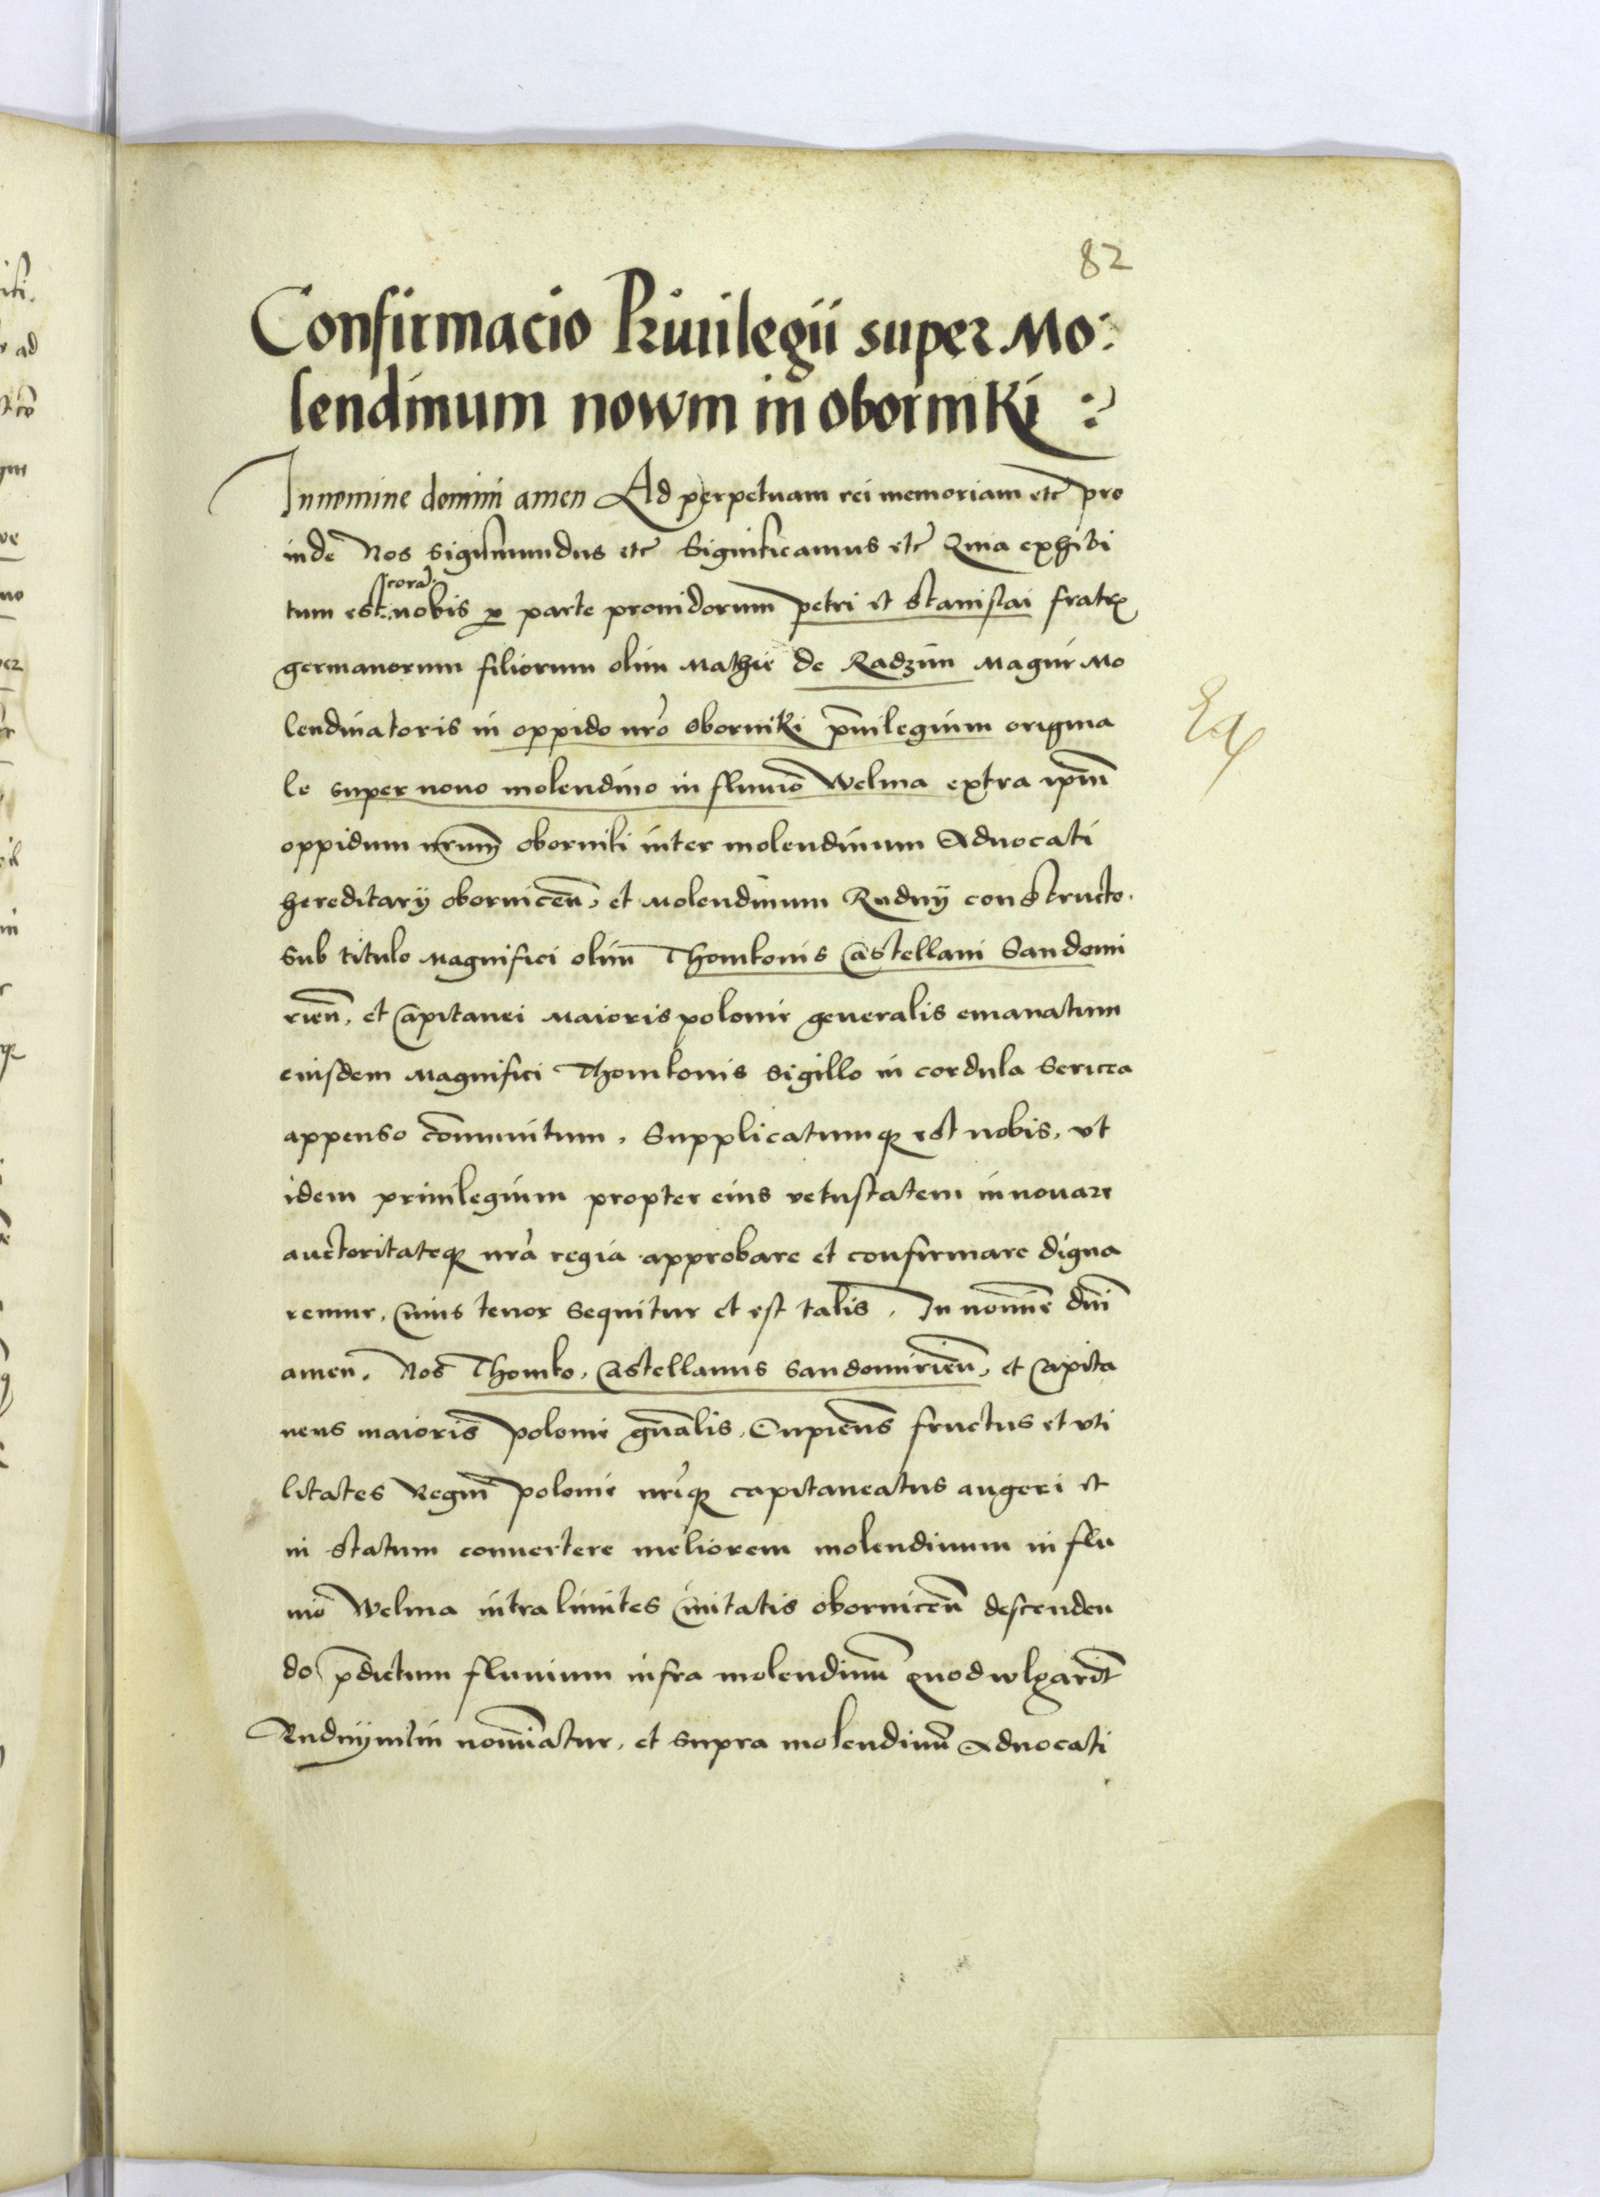 82
Confirmacio Privilegii super Mo:
lendinum nowm in oborniki :
In nomine domini amen Ad perpetuam rei memoriam etc pro
inde Nos Sigismundus etc Significamus etc Quia exhibi
corā
tum est nobis p parte providorum petri et Stanislai fratrᷓ
germanorum filiorum olim Mathie de Radzim Magni Mo
lendinatoris in oppido nr̄o oborniki pvilegium origina
le super novo molendino in fluvio Welma extra ipm̄
oppidum nrum̄ oborniki inter molendinum Advocati
hereditarÿ obornicen̄, et Molendinum Rudnÿ constructo.
sub titulo Magnifici olim Thomkonis Castellani Sandomi
rien̄, et Capitanei Maioris polonie generalis emanatum
eiusdem Magnifici Thomkonis sigillo in cordula sericea
appenso cōmunitum, Supplicatumqꝫ est nobis, vt
idem privilegium propter eius vetustatem innovare
auctoritateqꝫ nr̄a regia approbare et confirmare digna
remur, Cuius tenor sequitur et est talis, In nomine dn̄i
amen, Nos Thomko, Castellanus Sandomirien̄, et Capita
neus maioris polonie gn̄alis, Cupiens fructus et vti
litates Regni polonie nr̄iqꝫ capitaneatus augeri et
in statum convertere meliorem molendinum in flu
vio Welma intra limites Civitatis obornicen̄ descenden
do p̄dictum fluvium infra molendinū quod wlgarit̄
Rudnÿmlin nominatur, et supra molendinū Advocati